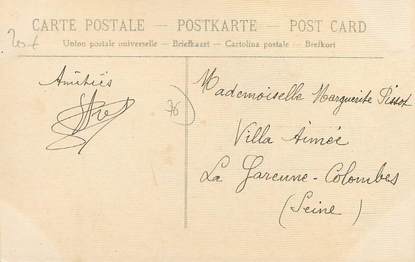 CARTE POSTALE — POSTKARTE — POST CARD
Union postale universelle — Briefkaart — Cartolina postale — Brefkort
Amitiés
76
Mademoiselle Marguerite Pissot
Villa Aimée
La Garenne-Colombes
(Seine)